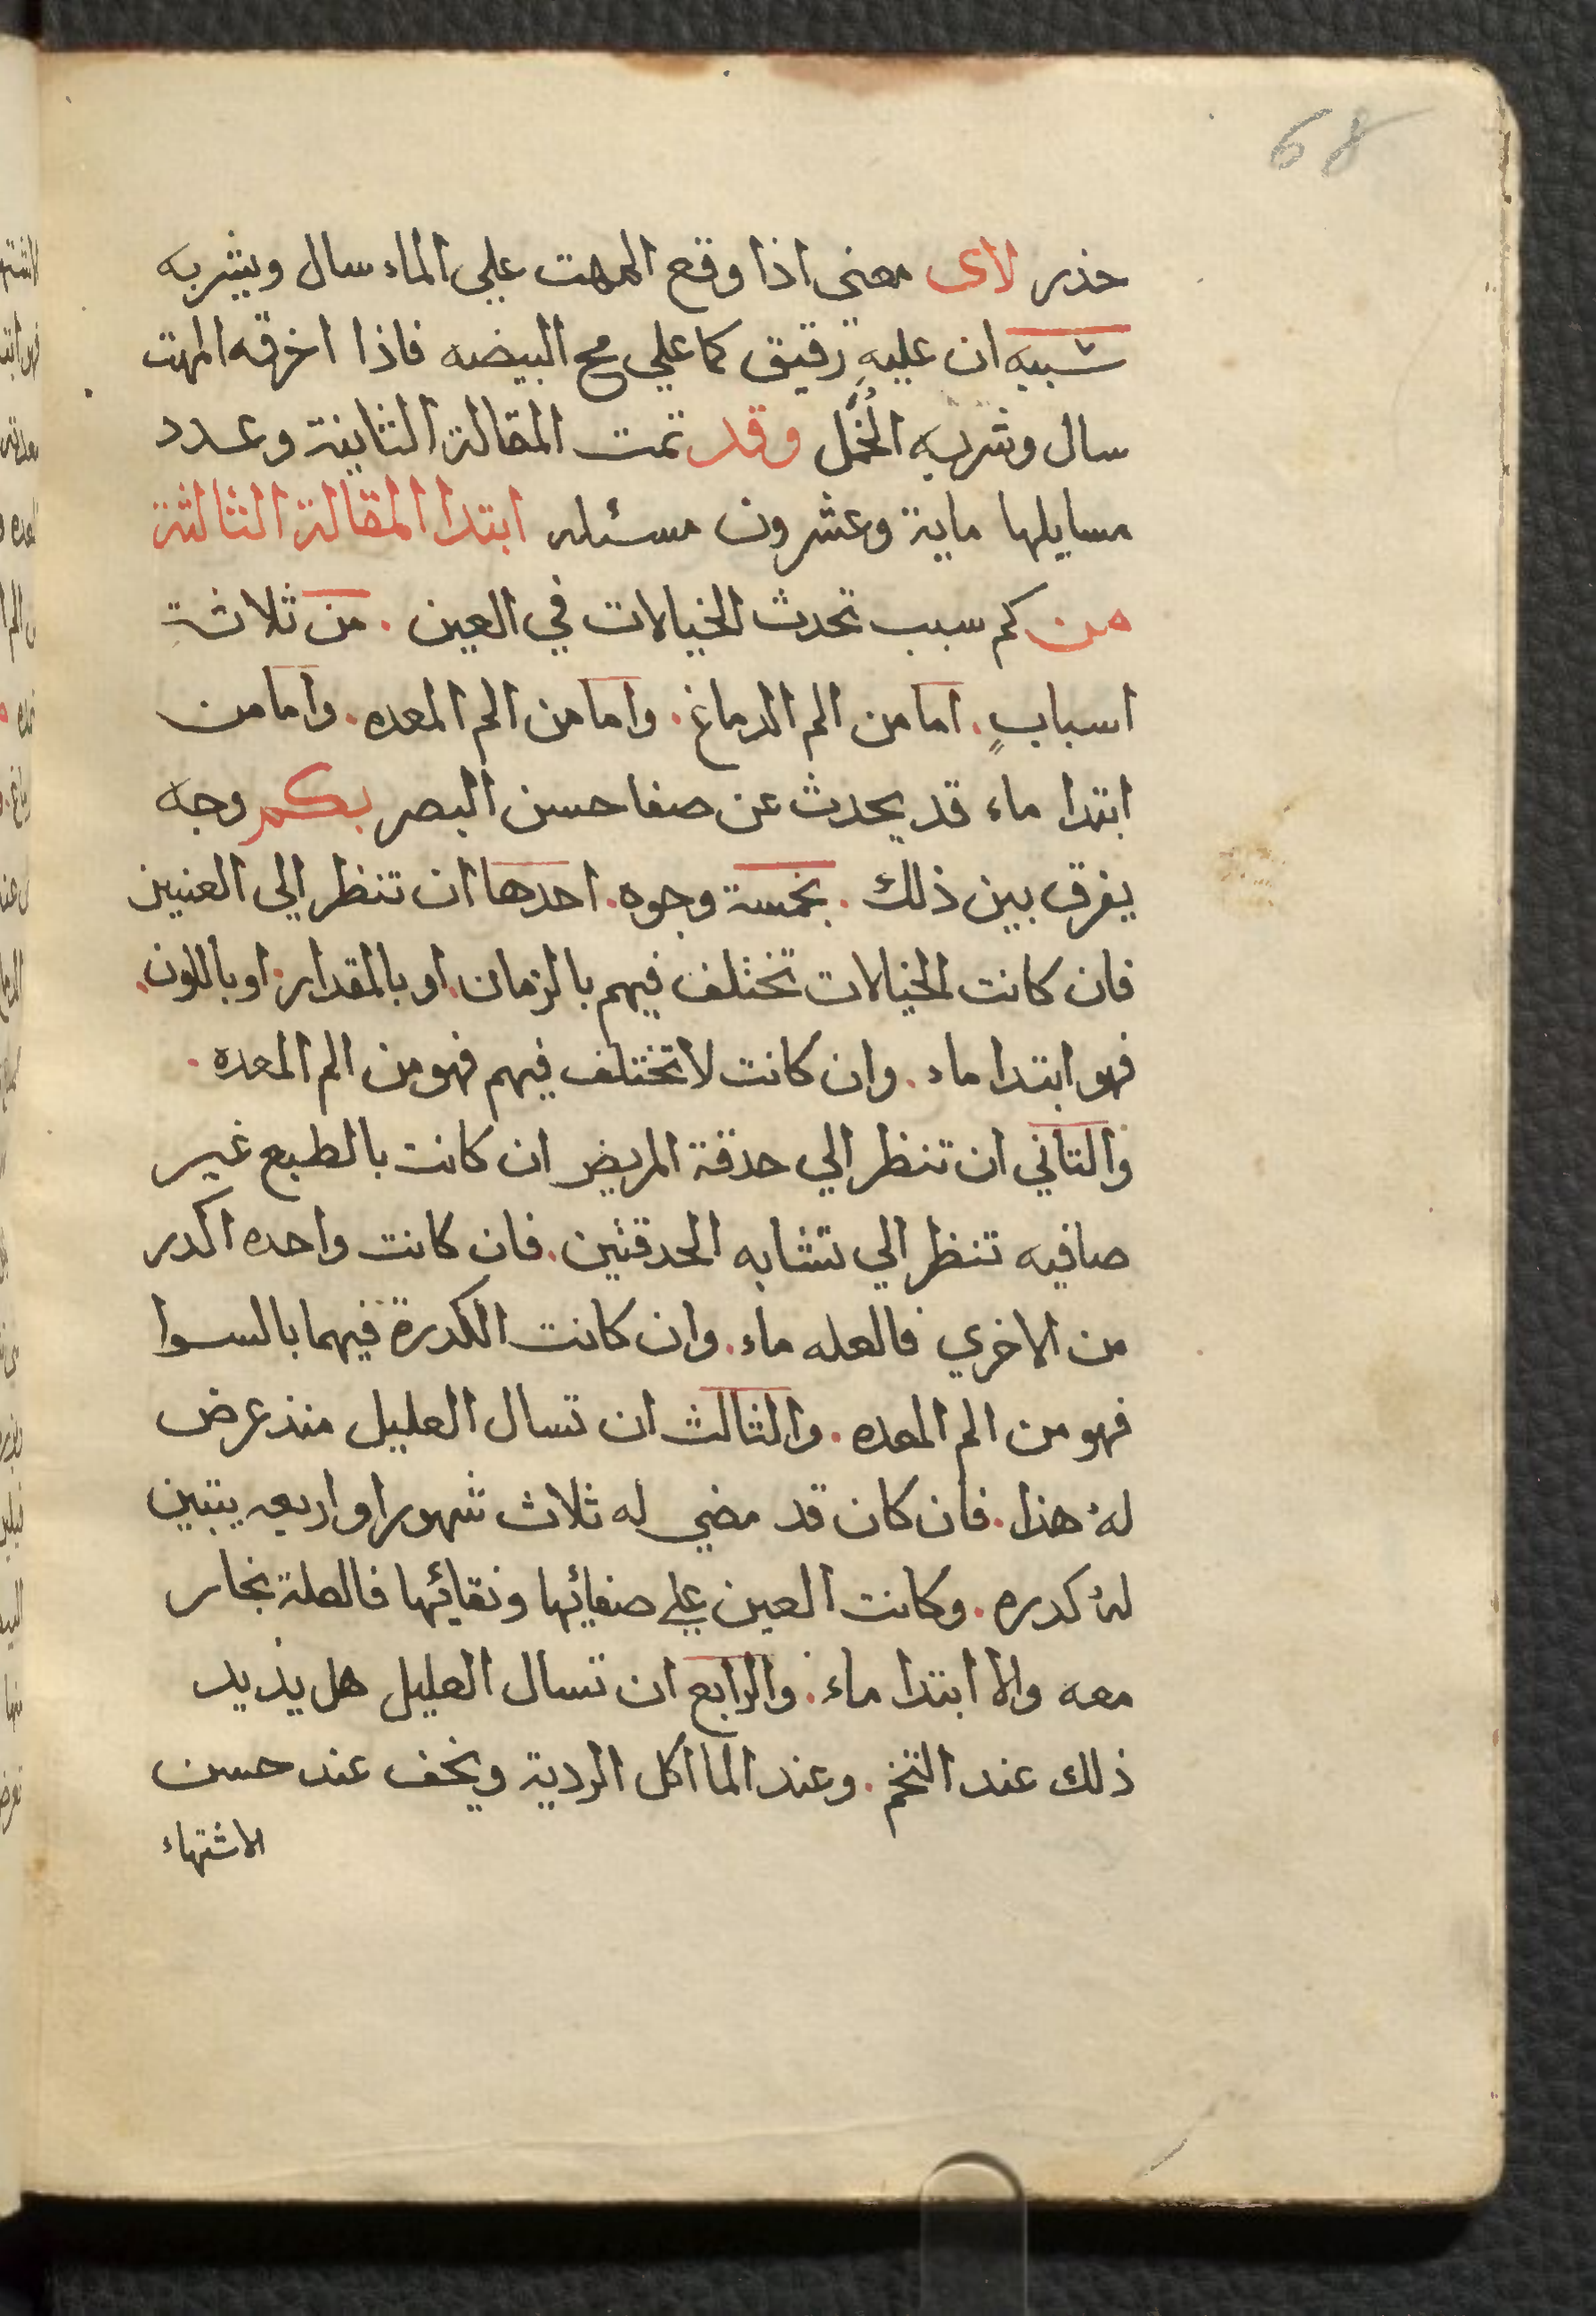 68
حذر لاى معني اذا وقع المهت علي الماء سال ويشربه
شبيه ان عليهِ رقيق كما علي مح البيضه فاذا اخرقه المهت
سال وشربه الخُمَّل وقد تمت المقالة الثانية وعدد
مسايلها ماية وعشرون مسئله ابتدا المقالة الثالثة
من كم سبب تحدث الخيالات في العين . من ثلاثة
اسبابٍ . اما من الم الدماغ . واما من الم المعده . واما من
ابتدا ماء قد يحدث عن صفا حسن البصر بكم وجه
يفرق بين ذلك . بخمسة وجوه . احدها ان تنظر الي العنيين
فان كانت الخيالات تختلف فيهم بالزمان . او بالمقدار . او باللون .
فهو ابتدا ماء . وان كانت لا تختلف فيهم فهو من الم المعده .
والتاني ان تنظر الي حدقة المريض ان كانت بالطبع غير
صافيه تنظر الي تشابه الحدقتين . فان كانت واحده اكدر
من الاخري فالعله ماء . وان كانت الكدرة فيهما بالسوا
فهو من الم المعده . والثالث ان تسال العليل منذ عرض
لهُ هذا . فان كان قد مضي له ثلاث شهور او اربعه يتبين
لهُ كدره . وكانت العين علي صفائها ونقائها فالعلة بخار
معه والا ابتدا ماء . والرابع ان تسال العليل هل يذيد
ذلك عند التخم . وعند الماأكل الردية ويخف عند حسن
الاشتهاء